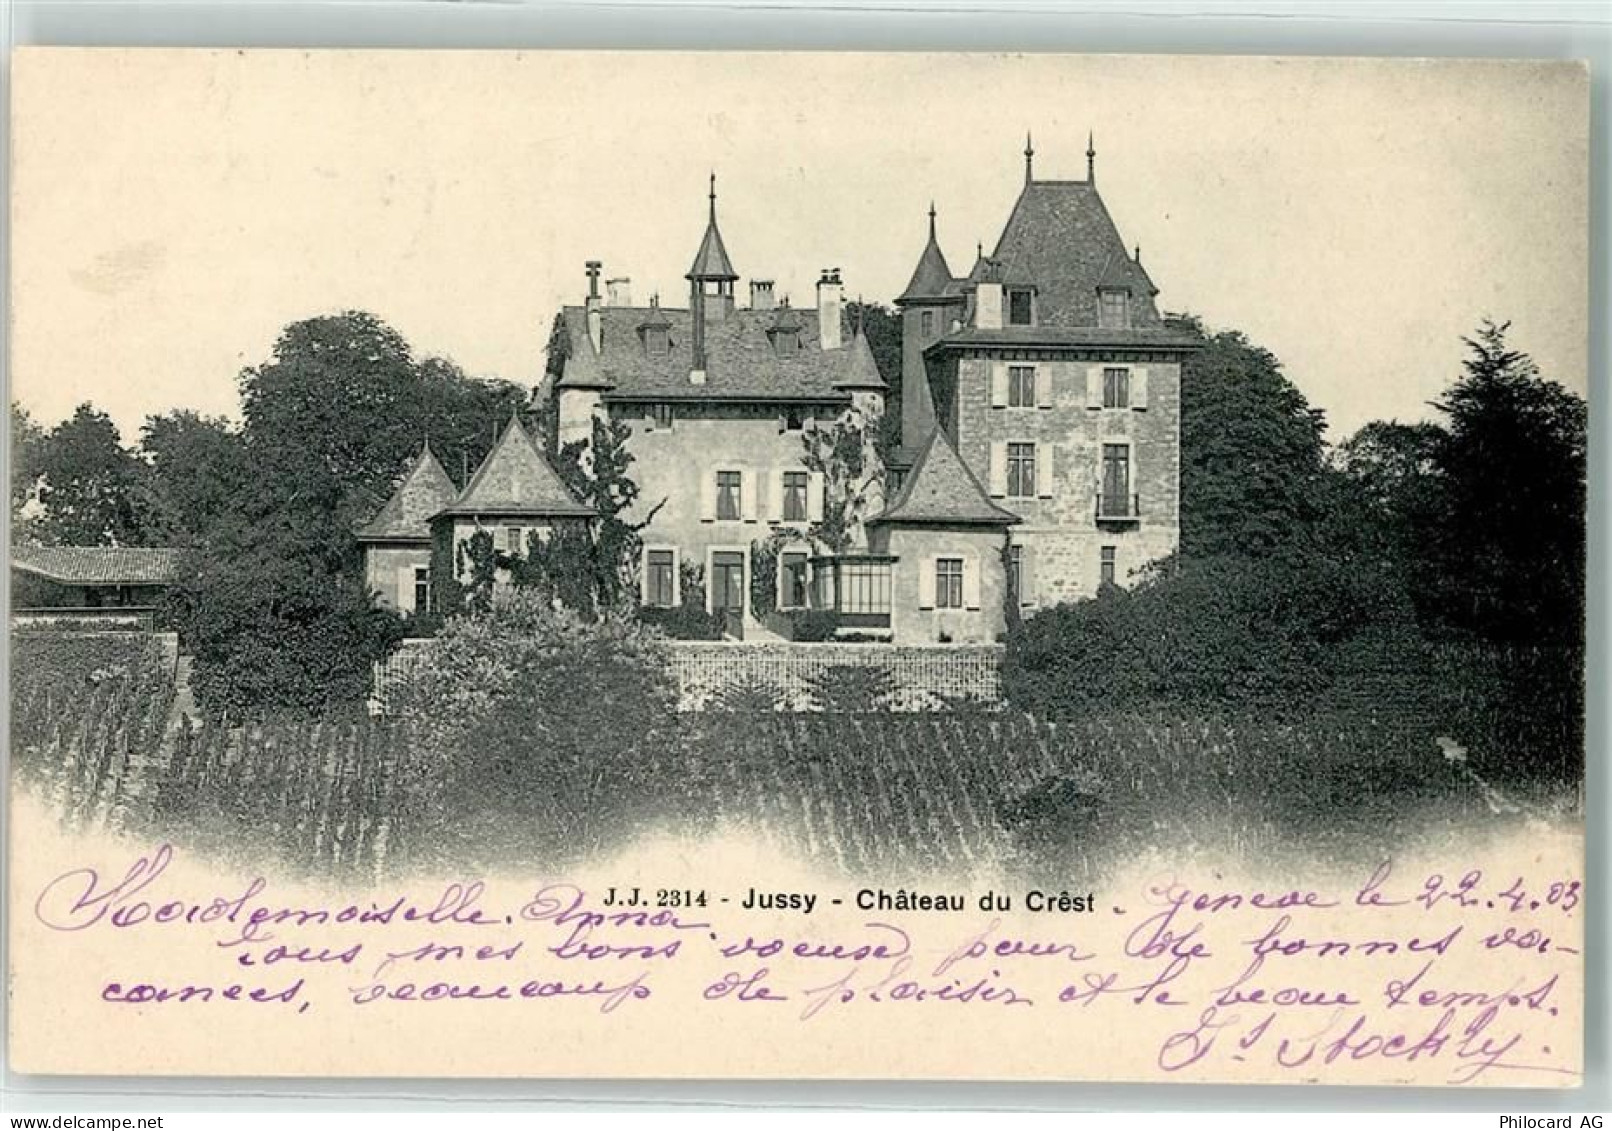 J.J. 2314 - Jussy - Château du Crêst
Genève le 22.4.03
Mademoiselle Anna
Tous mes bons voeux pour de bonnes va-
cances, beaucoup de plaisir et de beau temps.
Stockly.
www.delcampe.net
Philocard AG